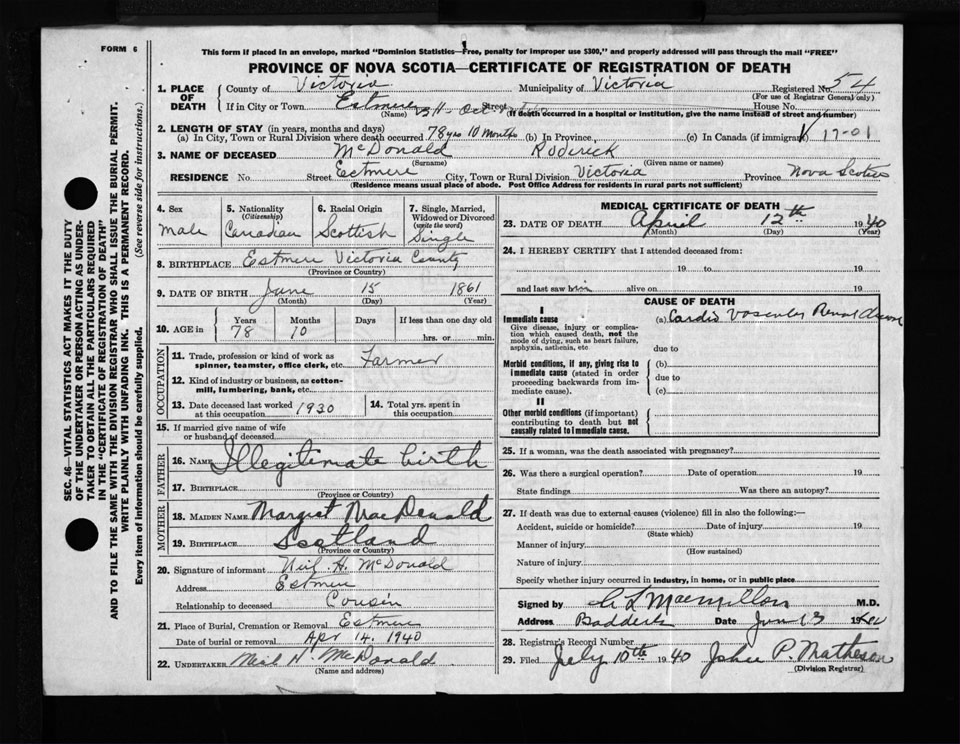 FORM 6
This form if placed in an envelope, marked "Dominion Statistics—Free, penalty for improper use $300," and properly addressed will pass through the mail "FREE"
PROVINCE OF NOVA SCOTIA—CERTIFICATE OF REGISTRATION OF DEATH
1. PLACE OF DEATH County of Victoria Municipality of Victoria Registered No. 54
(For use of Registrar General only)
If in City or Town Estmere Street House No.
(Name) (If death occurred in a hospital or institution, give the name instead of street and number)
2. LENGTH OF STAY (in years, months and days)
(a) In City, Town or Rural Division where death occurred 78 yrs 10 months (b) In Province (c) In Canada (if immigrant) 17-01
3. NAME OF DECEASED McDonald Roderick
(Surname) (Given name or names)
RESIDENCE No. Street Estmere City, Town or Rural Division Victoria Province Nova Scotia
(Residence means usual place of abode. Post Office Address for residents in rural parts not sufficient)
4. Sex Male
5. Nationality (Citizenship) Canadian
6. Racial Origin Scottish
7. Single, Married, Widowed or Divorced (write the word) Single
8. BIRTHPLACE Estmere Victoria County
(Province or Country)
9. DATE OF BIRTH June 15 1861
(Month) (Day) (Year)
10. AGE in Years 78 Months 10 Days If less than one day old hrs. or min.
OCCUPATION
11. Trade, profession or kind of work as spinner, teamster, office clerk, etc. Farmer
12. Kind of industry or business, as cotton-mill, lumbering, bank, etc.
13. Date deceased last worked at this occupation 1930
14. Total yrs. spent in this occupation
15. If married give name of wife or husband of deceased
FATHER
16. NAME Illegitimate birth
17. BIRTHPLACE
(Province or Country)
MOTHER
18. MAIDEN NAME Margret MacDonald
19. BIRTHPLACE Scotland
(Province or Country)
20. Signature of informant Neil H. McDonald
Address Estmere
Relationship to deceased Cousin
21. Place of Burial, Cremation or Removal Estmere
Date of burial or removal Apr 14, 1940
22. UNDERTAKER Neil H. McDonald
(Name and address)
MEDICAL CERTIFICATE OF DEATH
23. DATE OF DEATH April 12th 1940
(Month) (Day) (Year)
24. I HEREBY CERTIFY that I attended deceased from:
19 to 19
and last saw him alive on 19
CAUSE OF DEATH
I
Immediate cause (a) Cardio Vascular Renal Disease
Give disease, injury or complication which caused death, not the mode of dying, such as heart failure, asphyxia, asthenia, etc
due to
Morbid conditions, if any, giving rise to immediate cause (stated in order proceeding backwards from immediate cause).
(b)
due to
(c)
II
Other morbid conditions (if important) contributing to death but not causally related to immediate cause.
25. If a woman, was the death associated with pregnancy?
26. Was there a surgical operation? Date of operation 19
State findings Was there an autopsy?
27. If death was due to external causes (violence) fill in also the following:—
Accident, suicide or homicide? Date of injury 19
(State which)
Manner of injury
(How sustained)
Nature of injury
Specify whether injury occurred in industry, in home, or in public place
Signed by C L Macmillan M.D.
Address Baddeck Date Jun 13
28. Registrar's Record Number
29. Filed July 10th 1940 John P. Matheson
(Division Registrar)
SEC. 46—VITAL STATISTICS ACT MAKES IT THE DUTY
OF THE UNDERTAKER OR PERSON ACTING AS UNDER-
TAKER TO OBTAIN ALL THE PARTICULARS REQUIRED
IN THE "CERTIFICATE OF REGISTRATION OF DEATH"
AND TO FILE THE SAME WITH THE DIVISION REGISTRAR WHO SHALL ISSUE THE BURIAL PERMIT.
WRITE PLAINLY WITH UNFADING INK. THIS IS A PERMANENT RECORD.
Every item of information should be carefully supplied. (See reverse side for instructions.)